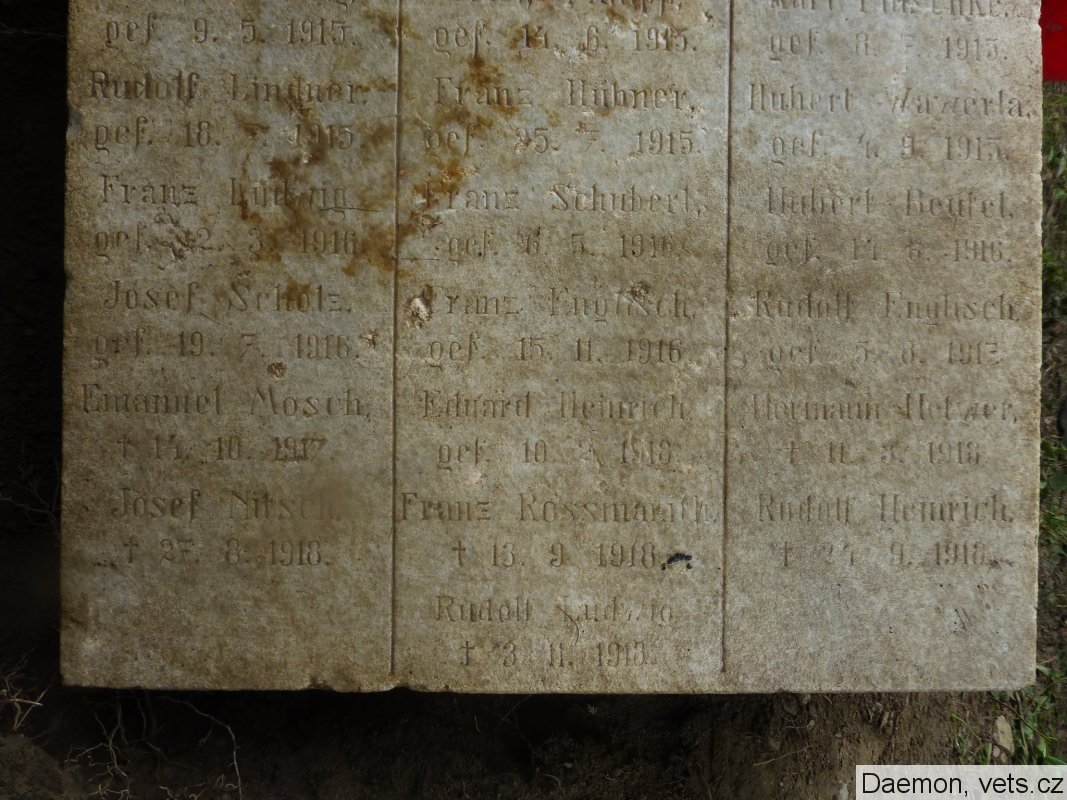 gef. 9. 5. 1915.
Rudolf Lindner,
gef. 18. 7. 1915.
Franz Ludwig,
gef. 12. 3. 1916.
Josef Scholz,
gef. 19. 7. 1916.
Emanuel Mosch,
† 14. 10. 1917.
Josef Nitsch,
† 27. 8. 1918.
gef. 14. 6. 1915.
Franz Hübner,
gef. 25. 7. 1915.
Franz Schubert,
gef. 6. 5. 1916.
Franz Englisch,
gef. 15. 11. 1916.
Eduard Heinrich,
gef. 10. 1918.
Franz Rossmanith,
† 13. 9. 1918.
Rudolf Ludwig
† 3. 11. 1918.
gef. 8. 7. 1915.
Hubert Wawerla,
gef. 4. 9. 1915.
Hubert Beutel,
gef. 14. 1916.
Rudolf Englisch,
gef. 5. 8. 1917.
Hermann
† 11. 3. 1918
Rudolf Heinrich,
† 24. 9. 1918.
Daemon, vets.cz